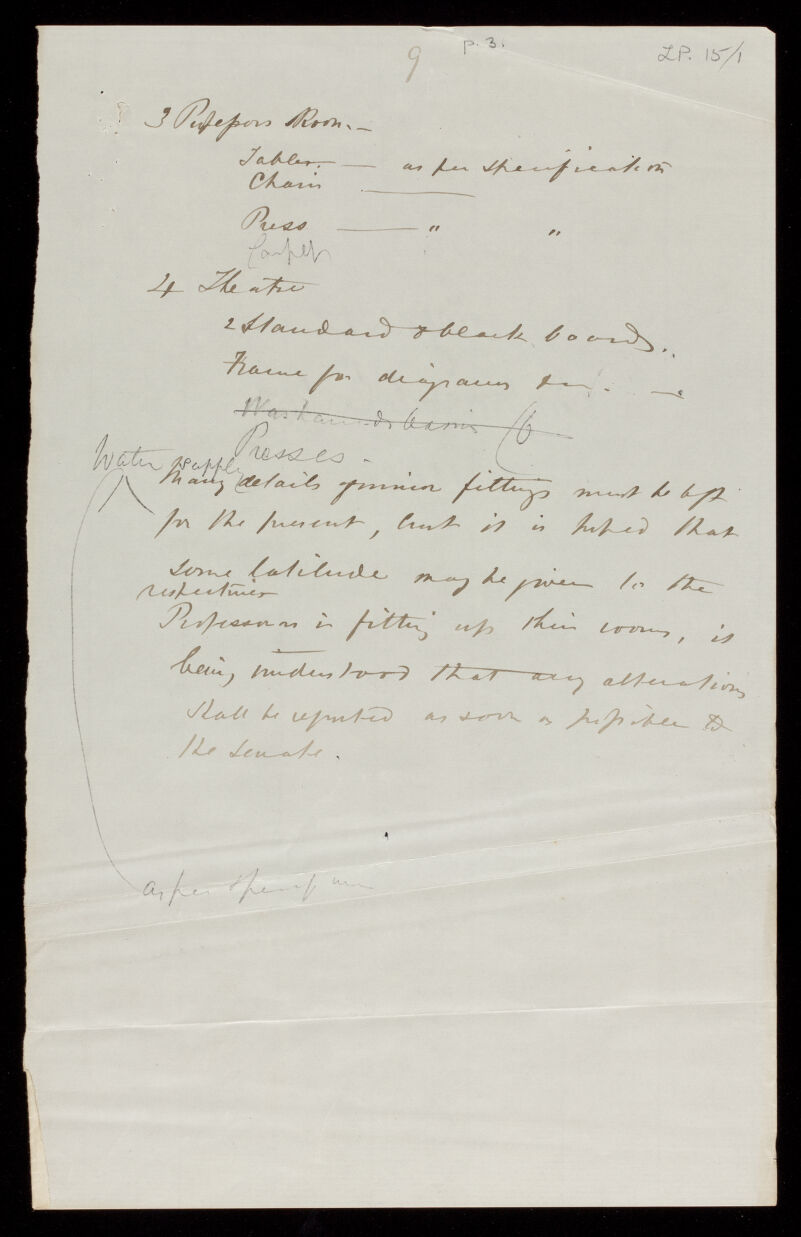 9 p. 3. LP. 15/1
3 Professors Room. —
Tables. — as per specification
Chairs ———
Press ——— " "
Carpet
4 Theatre
2 Standard & black boards.
Frame for diagrams
Wash hands basin
Presses -
Water supply
Many details of minor fittings must be left
for the present, but it is hoped that
some latitude may be given to the
respective
Professors in fitting up their rooms, it
being understood that any alterations
shall be reported as soon as possible to
the Senate.
as per